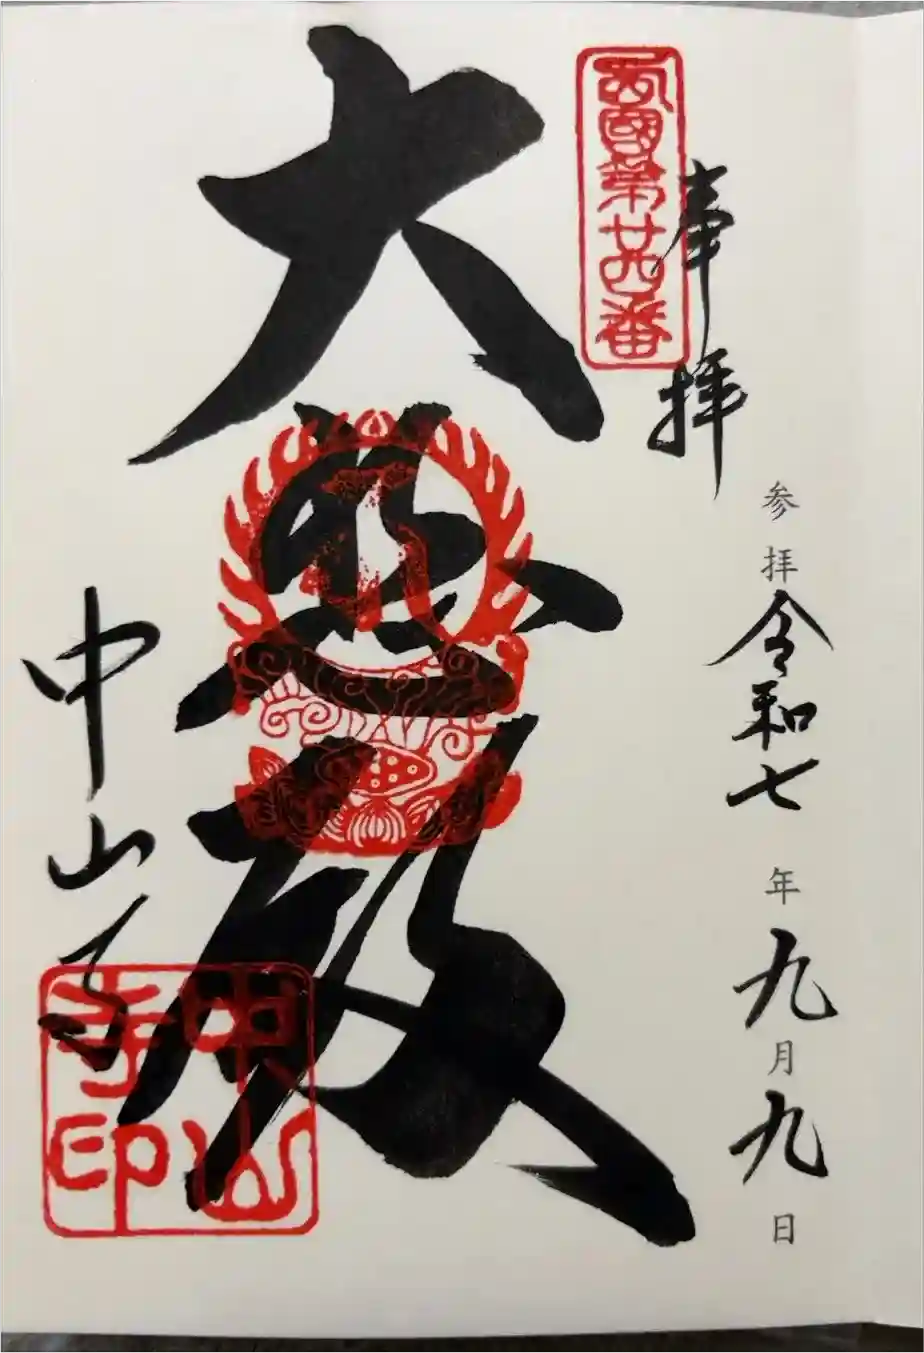 参拝令和七年九月九日
奉拝
西國第廿四番
大悲殿
中山寺
中山寺印